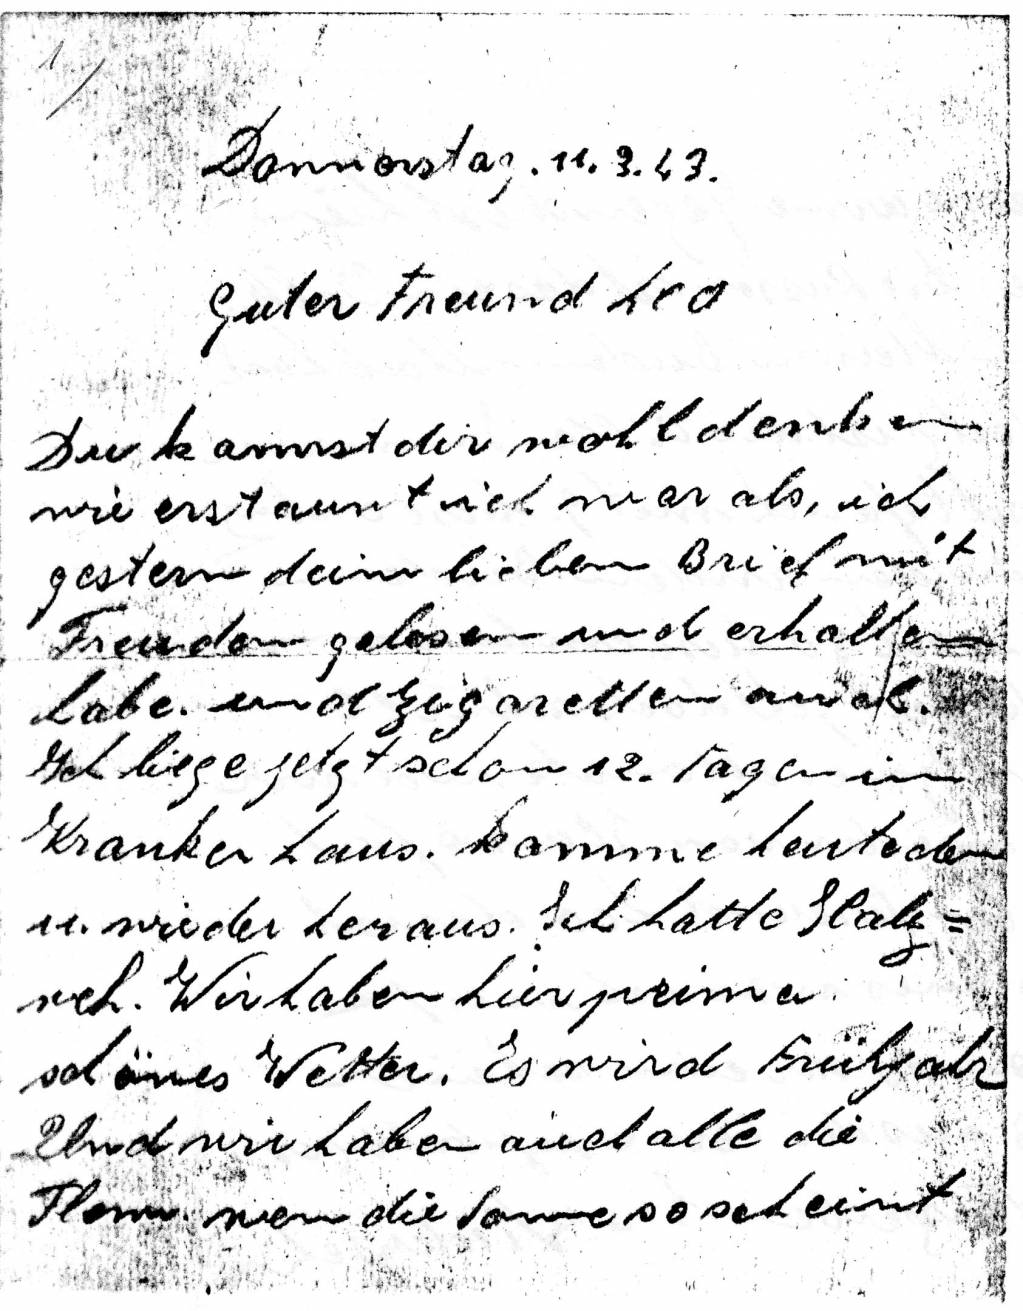 1)
Donnorstag. 11. 3. 43.
Guter Freund Leo
Du kannst dir wohl denken
wie erstaunt ich war als, ich
gestern dein lieben Brief mit
Freuden gelesen und erhalten
habe. und Zigaretten auch.
Ich liege jetzt schon 12. Tagen im
Krankenhaus. komme heute den
11. wieder heraus. Ich hatte Halz=
weh. Wir haben hier prima
schönes Wetter. Es wird Frühjahr
Und wir haben auch alle die
wen die Sonne so scheint